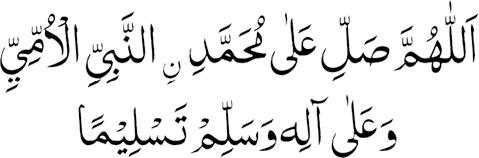 اَللّٰهُمَّ صَلِّ عَلٰى مُحَمَّدِ نِ النَّبِيِّ الْاُمِّيِّ
وَعَلٰى آلِهٖ وَسَلِّمْ تَسْلِيْمًا